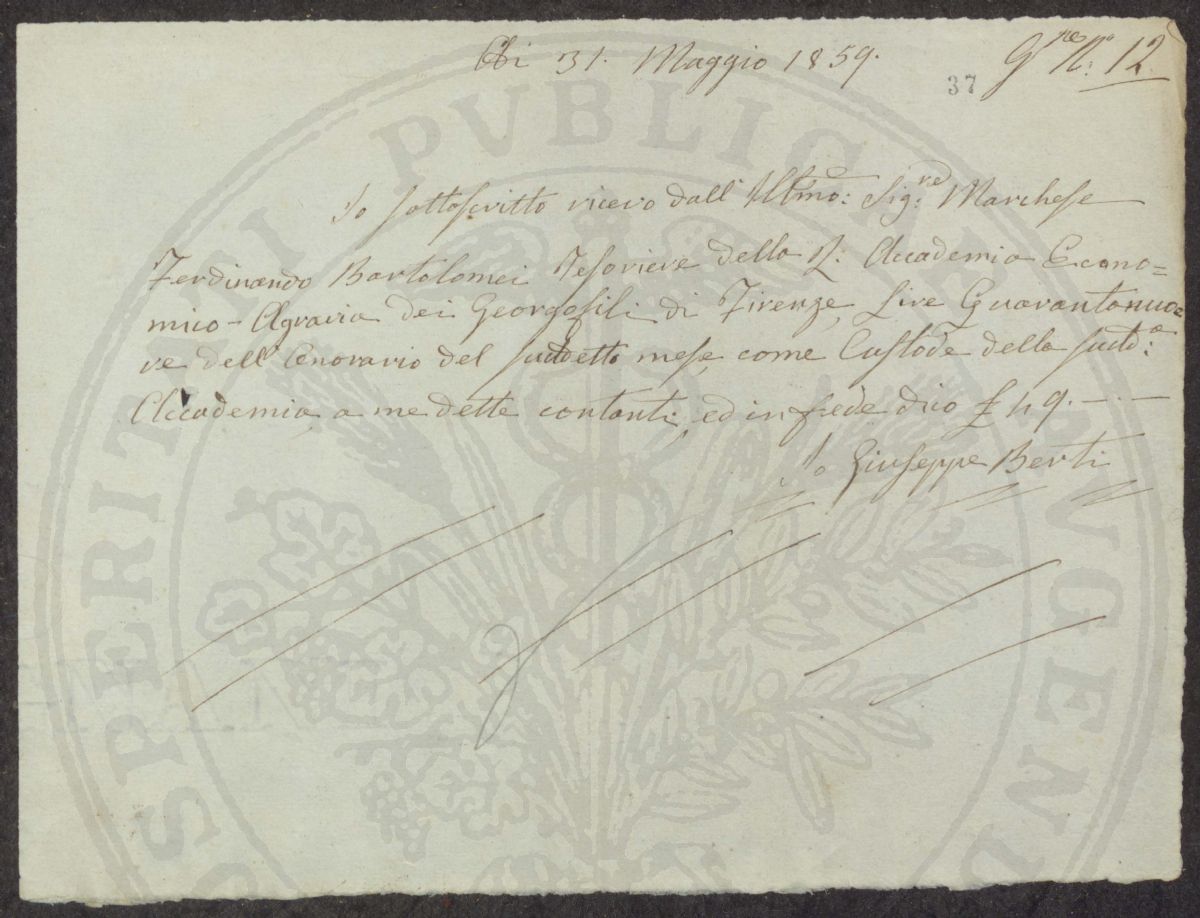 Adi 31. Maggio 1859.
37
N: 12.
Io sottoscritto ricevo dall' Illmo: Sig:re Marchese
Ferdinando Bartolomei Tesoriere della R: Accademia Econo=
mico-Agraria dei Georgofili di Firenze, Lire Quarantanuo=
ve dell' Onorario del suddetto mese, come Custode della sudd:a
Accademia, a me dette contanti, ed in fede dico £ 49.-.-
Io Giuseppe Berti
PROSPERITATI PVBLICAE AVGENDAE